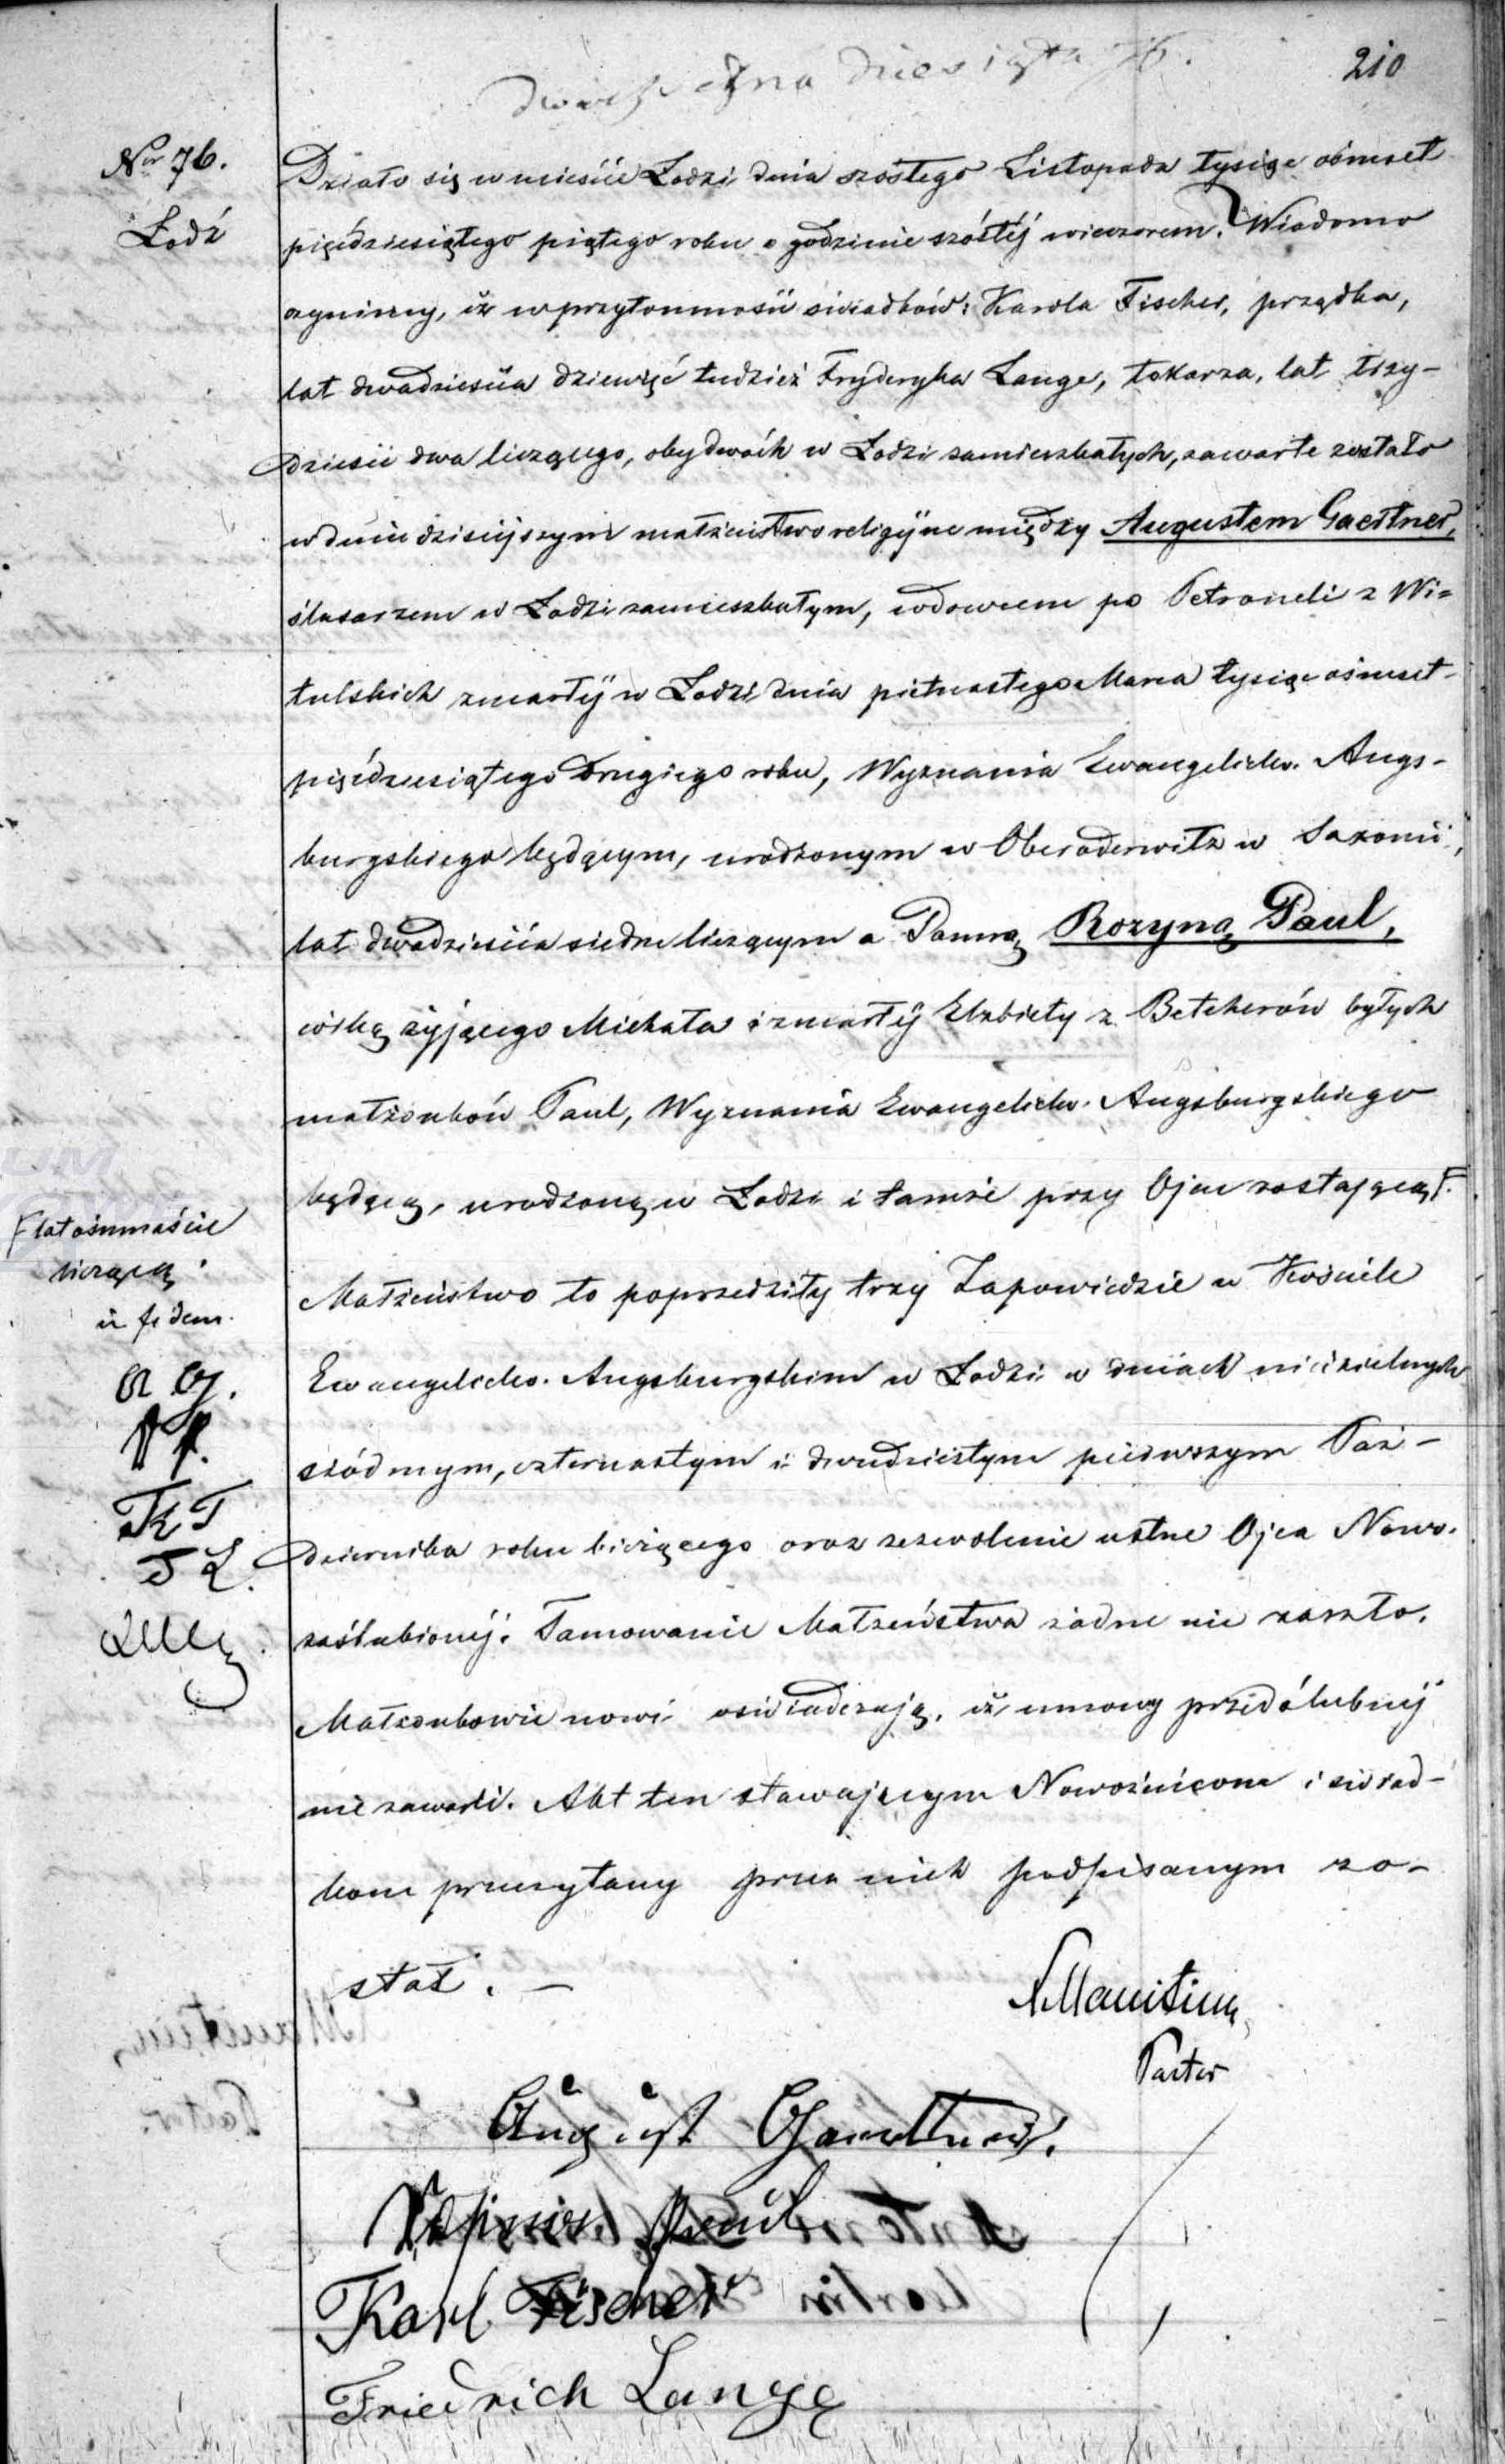 210
Nr 76.
Łodź
Działo się w mieście Łodzi dnia szóstego Listopada tysiąc ośmset
pięćdziesiątego piątego roku o godzinie szóstéj wieczorem. Wiadomo
czynimy, iż w przytomności świadków: Karola Fischer, prządka,
lat dwadzieścia dziewięć tudzież Fryderyka Lange, tokarza, lat trzy-
dzieści dwa liczącego, obydwóch w Łodzi zamieszkałych, zawarte zostało
w dniu dzisiejszym małżeństwo religijne między Augustem Gaertner,
ślusarzem w Łodzi zamieszkałym, wdowcem po Petroneli z Wi=
tulskich zmarłéj w Łodzi dnia piętnastego Marca tysiąc ośmset-
pięćdziesiątego drugiego roku, Wyznania Ewangelicko. Augs-
burgskiego będącym, urodzonym w Oberoderwitz w Saxonii,
lat dwadzieścia siedm liczącym a Panną Rozyną Paul,
córką żyjącego Michała i zmarłéj Elżbiety z Betcherów byłych
małżonków Paul, Wyznania Ewangelicko. Augsburgskiego
będącą, urodzoną w Łodzi i tamże przy Ojcu zostającą F.
F lat ośmnaście
liczącą.
in fidem.
A G.
R P.
K F
F L.
Małżeństwo to poprzedziły trzy Zapowiedzie w Kościele
Ewangelicko. Augsburgskim w Łodzi w dniach niedzielnych
siódmym, czternastym i dwudziestym pierwszym Paź-
dziernika roku bieżącego oraz zezwolenie ustne Ojca Nowo.
zaślubionéj. Tamowanie Małżeństwa żadne nie zaszło.
Małżonkowie nowi oświadczają, iż umowy przedślubnéj
nie zawarli. Akt ten stawającym Nowożeńcom i świad-
kom przeczytany przez nich podpisanym zo-
stał. —
Manitius,
Pastor
August Gaertner.
Rosina Paul
Karl Fischer
Friedrich Lange